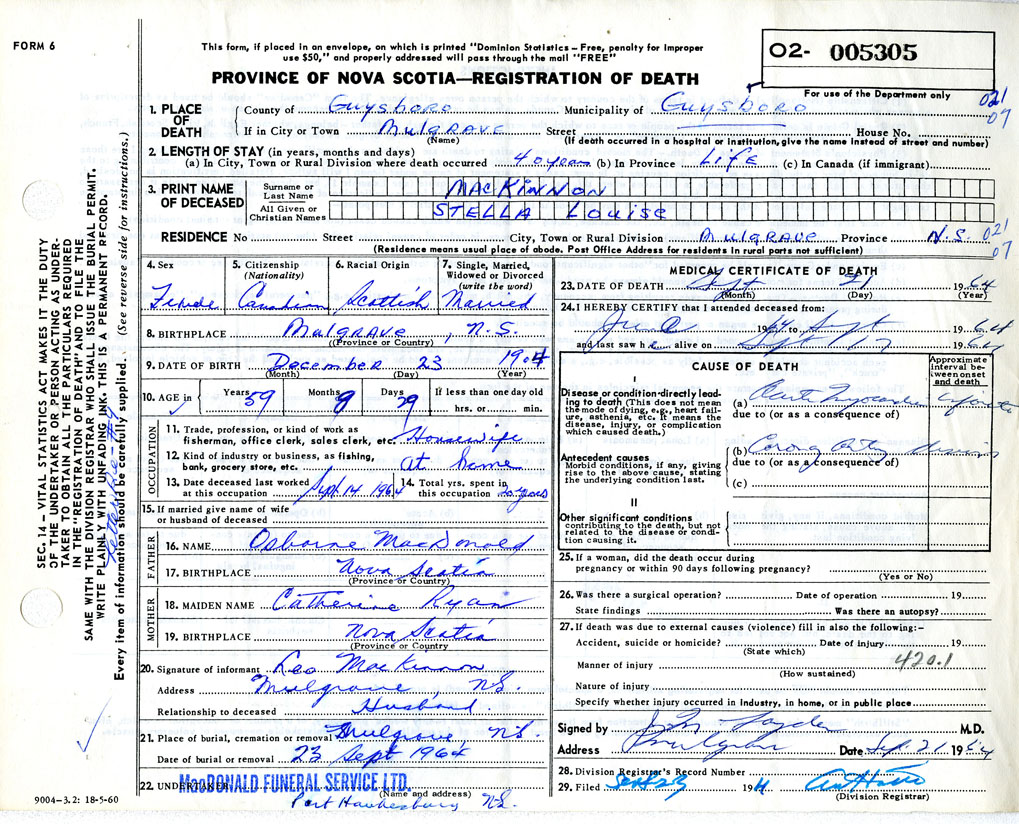 FORM 6
This form, if placed in an envelope, on which is printed "Dominion Statistics – Free, penalty for improper
use $50," and properly addressed will pass through the mail "FREE"
PROVINCE OF NOVA SCOTIA—REGISTRATION OF DEATH
02- 005305
For use of the Department only
021
07
1. PLACE OF DEATH
County of Guysboro Municipality of Guysboro
If in City or Town Mulgrave Street House No.
(Name) (If death occurred in a hospital or institution, give the name instead of street and number)
2. LENGTH OF STAY (in years, months and days)
(a) In City, Town or Rural Division where death occurred 40 years (b) In Province Life (c) In Canada (if immigrant)
3. PRINT NAME OF DECEASED
Surname or Last Name MACKINNON
All Given or Christian Names STELLA Louise
RESIDENCE No Street City, Town or Rural Division Mulgrave Province N.S.
021
07
(Residence means usual place of abode. Post Office Address for residents in rural parts not sufficient)
4. Sex
Female
5. Citizenship (Nationality)
Canadian
6. Racial Origin
Scottish
7. Single, Married, Widowed or Divorced (write the word)
Married
8. BIRTHPLACE Mulgrave, N.S.
(Province or Country)
9. DATE OF BIRTH December 23 1904
(Month) (Day) (Year)
10. AGE in Years 59 Months 8 Days 29 If less than one day old
hrs. or min.
OCCUPATION
11. Trade, profession, or kind of work as
fisherman, office clerk, sales clerk, etc. Housewife
12. Kind of industry or business, as fishing,
bank, grocery store, etc. at home
13. Date deceased last worked at this occupation Sept 14 1964
14. Total yrs. spent in this occupation years
15. If married give name of wife
or husband of deceased
FATHER
16. NAME Osborne MacDonald
17. BIRTHPLACE Nova Scotia
(Province or Country)
MOTHER
18. MAIDEN NAME Catherine Ryan
19. BIRTHPLACE Nova Scotia
(Province or Country
20. Signature of informant Leo MacKinnon
Address Mulgrave, NS.
Relationship to deceased Husband
21. Place of burial, cremation or removal Mulgrave NS.
Date of burial or removal 23 Sept 1964
22. UNDERTAKER MacDONALD FUNERAL SERVICE LTD.
(Name and address)
Port Hawkesbury NS.
MEDICAL CERTIFICATE OF DEATH
23. DATE OF DEATH Sept 21 1964
(Month) (Day) (Year)
24. I HEREBY CERTIFY that I attended deceased from:
June 1964 to Sept 1964
and last saw h alive on Sept 17 1964
CAUSE OF DEATH
Approximate interval between onset and death
I
Disease or condition directly leading to death (This does not mean the mode of dying, e.g., heart failure, asthenia, etc. It means the disease, injury, or complication which caused death.)
(a)
due to (or as a consequence of)
Antecedent causes
Morbid conditions, if any, giving rise to the above cause, stating the underlying condition last.
(b)
due to (or as a consequence of)
(c)
II
Other significant conditions
contributing to the death, but not related to the disease or condition causing it.
25. If a woman, did the death occur during
pregnancy or within 90 days following pregnancy?
(Yes or No)
26. Was there a surgical operation? Date of operation 19
State findings Was there an autopsy?
27. If death was due to external causes (violence) fill in also the following:–
Accident, suicide or homicide? Date of injury 19
(State which)
420.1
Manner of injury
(How sustained)
Nature of injury
Specify whether injury occurred in industry, in home, or in public place
Signed by M.D.
Address Mulgrave Date Sept. 21 1964
28. Division Registrar's Record Number
29. Filed Sept 23 1964
(Division Registrar)
SEC. 14 – VITAL STATISTICS ACT MAKES IT THE DUTY
OF THE UNDERTAKER OR PERSON ACTING AS UNDER-
TAKER TO OBTAIN ALL THE PARTICULARS REQUIRED
IN THE "REGISTRATION OF DEATH" AND TO FILE THE
SAME WITH THE DIVISION REGISTRAR WHO SHALL ISSUE THE BURIAL PERMIT.
WRITE PLAINLY WITH UNFADING INK. THIS IS A PERMANENT RECORD.
Every item of information should be carefully supplied. (See reverse side for instructions.)
9004–3.2: 18-5-60